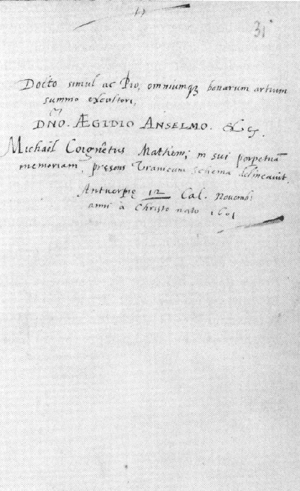 31
Docto simul ac Pio, omniumq; bonarum artium
summo excultori,
DÑO. ÆGIDIO ANSELMO. &c
Michaël Coignetus Mathem; in sui perpetuā
memoriam, præsens Uranicum schema delineavit.
Antverpiæ 12 Cal. Novemb;
anni à Christo nato 1601